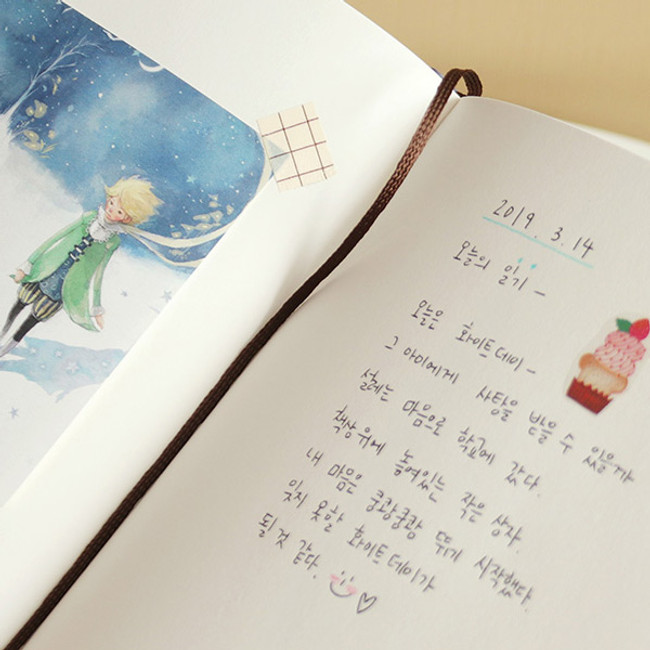 2019. 3. 14
오늘의 일기 -
오늘은 화이트데이 -
그 아이에게 사탕을 받을 수 있을까
설레는 마음으로 학교에 갔다.
책상 위에 놓여있는 작은 상자.
내 마음은 쿵쾅쿵쾅 뛰기 시작했다.
잊지 못할 화이트데이가
될 것 같다.